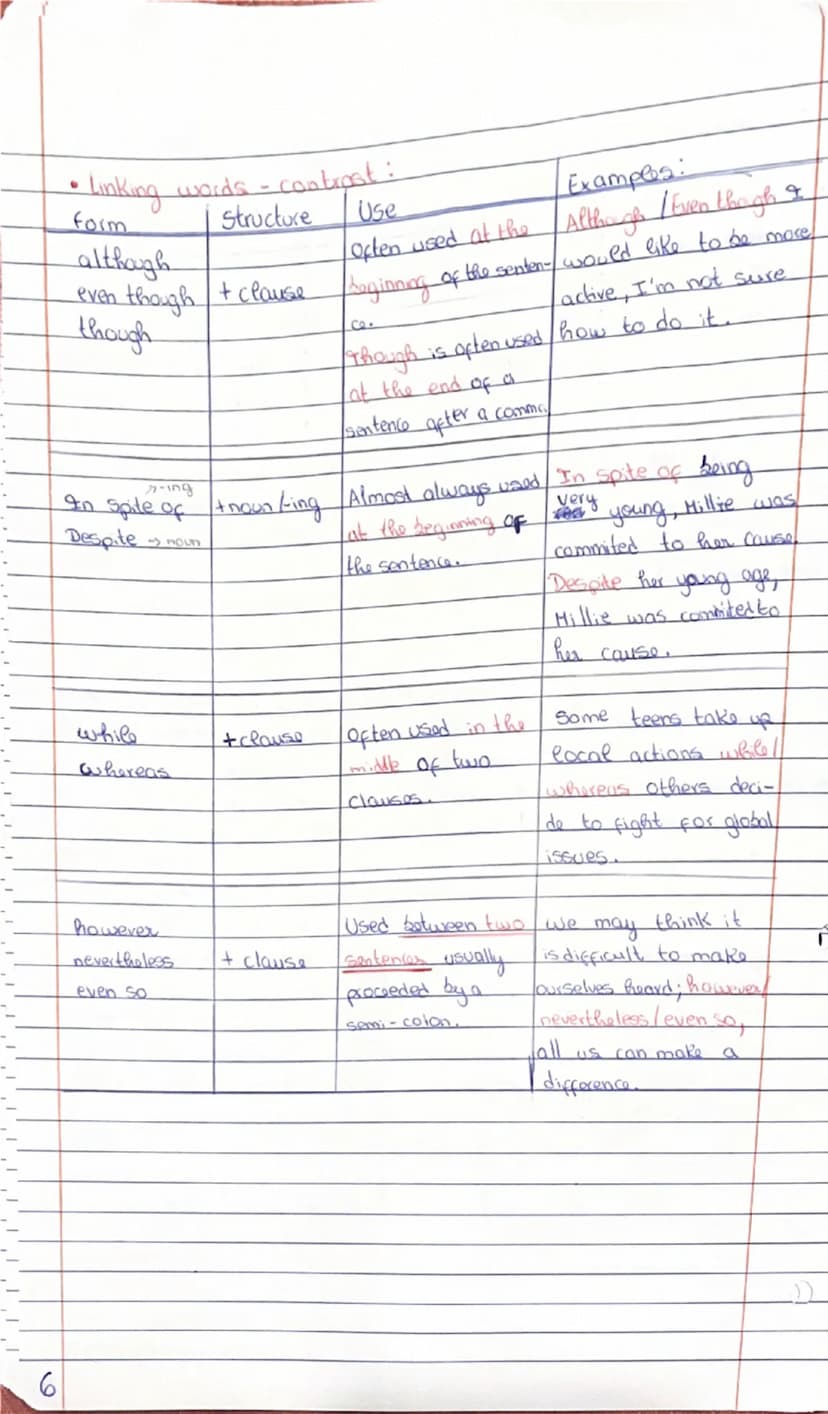 • Linking words - contrast:
Form
Structure
Use
Examples:
although
even though
though
+ clause
Often used at the
beginning of the senten-
ce.
Though is often used
at the end of a
sentence after a comma.
Although / Even though I
would like to be more
active, I'm not sure
how to do it.
-ing
In spite of
Despite → noun
+ noun /-ing
Almost always used
at the beginning of
the sentence.
In spite of being
very young, Millie was
commited to her cause.
Despite her young age,
Millie was commited to
her cause.
while
whereas
+ clause
Often used in the
middle of two
clauses.
Some teens take up
local actions while/
whereas others deci-
de to fight for global
issues.
however
nevertheless
even so
+ clause
Used between two
sentences usually
proceeded by a
semi-colon.
we may think it
is difficult to make
ourselves heard; however/
nevertheless/even so,
all us can make a
difference.
6